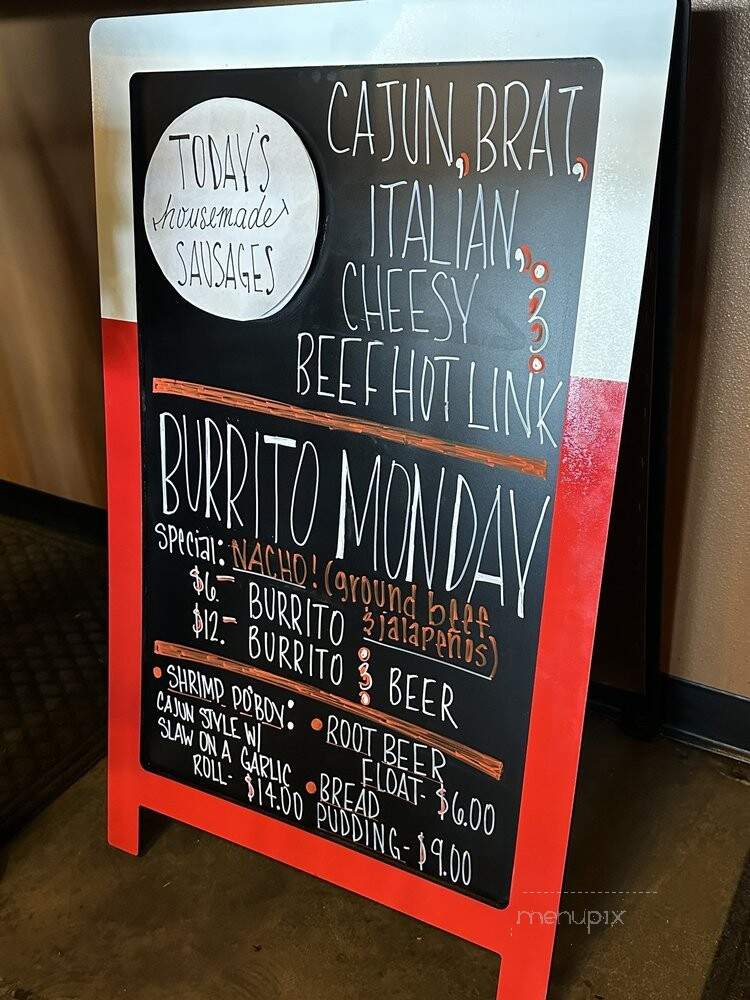 TODAY'S
housemade
SAUSAGES
CAJUN, BRAT,
ITALIAN,
CHEESY &
BEEF HOT LINK
BURRITO MONDAY
Special: NACHO! (ground beef
& jalapeños)
$6.- BURRITO
$12.- BURRITO & BEER
• SHRIMP PO'BOY:
CAJUN STYLE W/
SLAW ON A GARLIC
ROLL- $14.00
• ROOT BEER
FLOAT- $6.00
• BREAD
PUDDING- $9.00
menupix